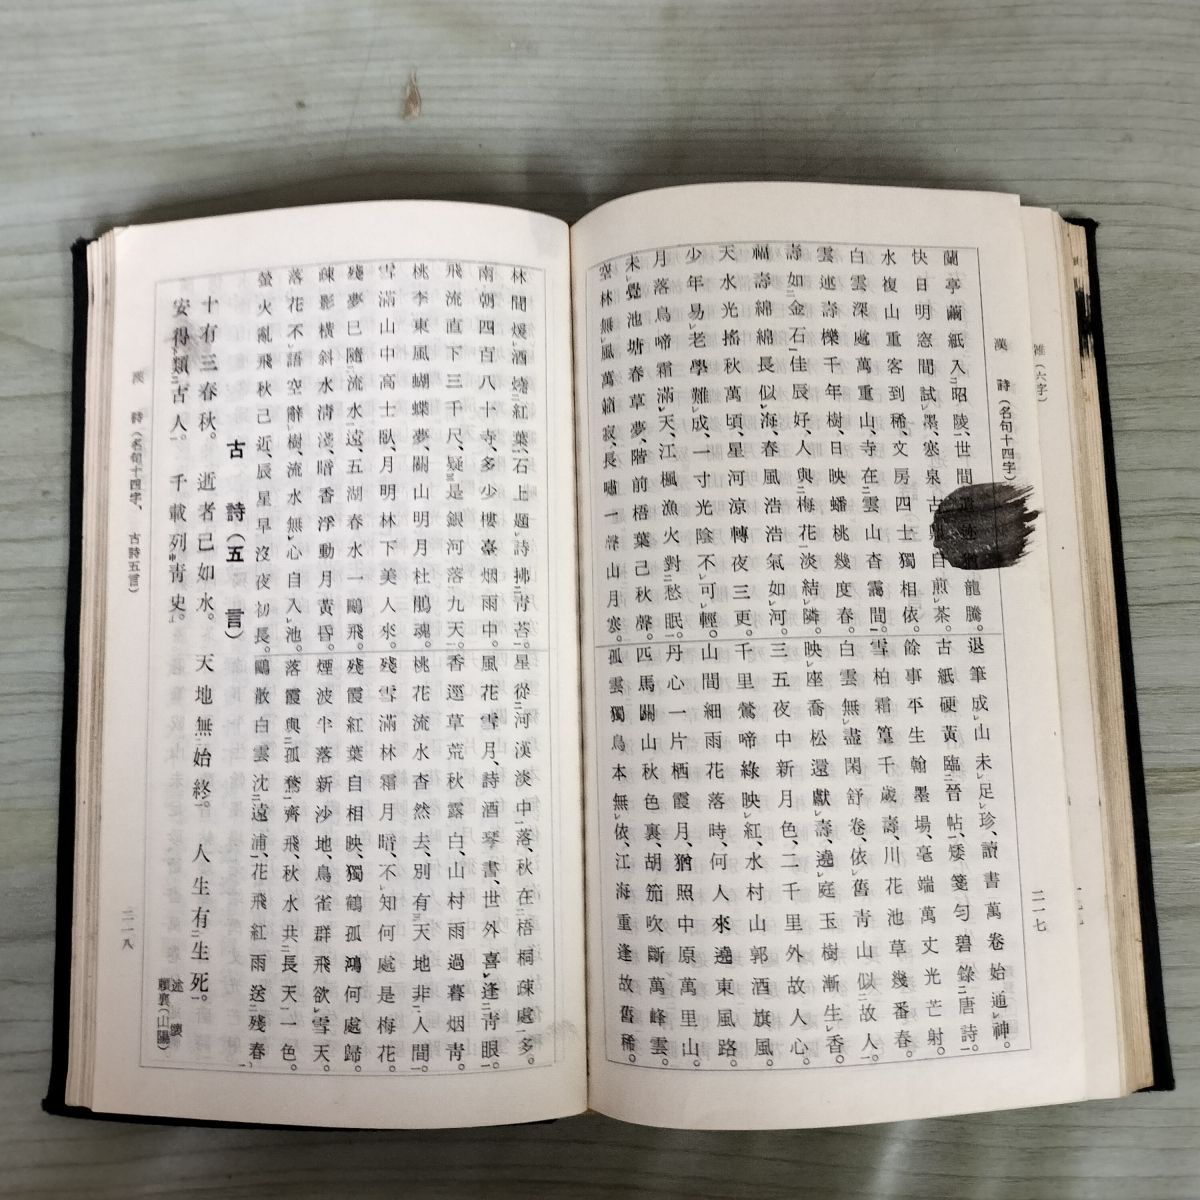 雜(六字)
漢詩(名句十四字)
蘭亭繭紙入昭陵、世間遺迹猶龍騰。
快日明窓間試墨、寒泉古鼎自煎茶。
水複山重客到稀、文房四士獨相依。
白雲深處萬重山、寺在雲山杳靄間。
雲迷壽櫟千年樹、日映蟠桃幾度春。
壽如金石佳辰好、人與梅花淡結隣。
福壽綿綿長似海、春風浩浩氣如河。
天水光搖秋萬頃、星河涼轉夜三更。
少年易老學難成、一寸光陰不可輕。
月落烏啼霜滿天、江楓漁火對愁眠。
未覺池塘春草夢、階前梧葉己秋聲。
空林無風萬籟寂、長嘯一聲山月寒。
退筆成山未足珍、讀書萬卷始通神。
古紙硬黃臨晉帖、矮箋匀碧錄唐詩。
餘事平生翰墨場、毫端萬丈光芒射。
雪柏霜篁千歲壽川花池草幾番春。
白雲無盡閑舒卷、依舊青山似故人。
映座喬松還獻壽、遶庭玉樹漸生香。
三五夜中新月色、二千里外故人心。
千里鶯啼綠映紅、水村山郭酒旗風。
山間細雨花落時、何人來遶東風路。
丹心一片栖霞月、猶照中原萬里山。
匹馬關山秋色裏、胡笳吹斷萬峰雲。
孤雲獨鳥本無依、江海重逢故舊稀。
二一七
林間煖酒燒紅葉、石上題詩拂靑苔。
南朝四百八十寺、多少樓臺烟雨中。
飛流直下三千尺、疑是銀河落九天。
桃李東風蝴蝶夢、關山明月杜鵑魂。
雪滿山中高士臥、月明林下美人來。
殘夢已隨流水遠、五湖春水一鷗飛。
疎影橫斜水淸淺、暗香浮動月黃昏。
落花不語空辭樹、流水無心自入池。
螢火亂飛秋己近、辰星早沒夜初長。
星從河漢淡中落、秋在梧桐疎處多。
風花雪月、詩酒琴書、世外喜逢靑眼。
香逕草荒秋露白、山村雨過暮烟靑。
桃花流水杳然去、別有天地非人間。
殘雪滿林霜月暗、不知何處是梅花。
殘霞紅葉自相映、獨鶴孤鴻何處歸。
煙波半落新沙地、鳥雀群飛欲雪天。
落霞與孤鶩齊飛、秋水共長天一色。
鷗散白雲沈遠浦、花飛紅雨送殘春。
古詩(五言)
十有三春秋。逝者己如水。天地無始終。人生有生死。
安得類古人。千載列靑史。
述懷
賴襄(山陽)
漢詩(名句十四字、古詩五言)
二一八